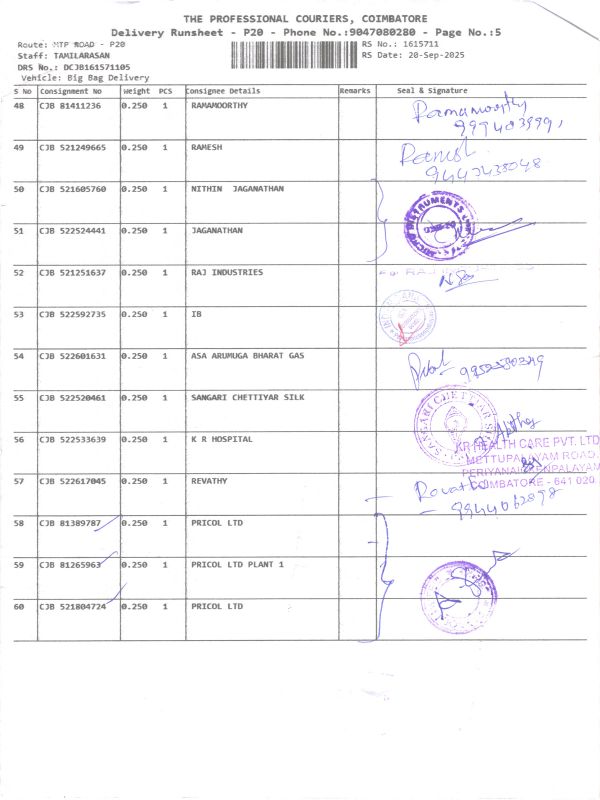 THE PROFESSIONAL COURIERS, COIMBATORE
Delivery Runsheet - P20 - Phone No.:9047080280 - Page No.:5
Route: MTP ROAD - P20 RS No.: 1615711
Staff: TAMILARASAN RS Date: 20-Sep-2025
DRS No.: DCJB161571105
Vehicle: Big Bag Delivery
S No Consignment No Weight PCS Consignee Details Remarks Seal & Signature
48 CJB 81411236 0.250 1 RAMAMOORTHY Ramamoorthy
49 CJB 521249665 0.250 1 RAMESH
50 CJB 521605760 0.250 1 NITHIN JAGANATHAN
51 CJB 522524441 0.250 1 JAGANATHAN
52 CJB 521251637 0.250 1 RAJ INDUSTRIES
53 CJB 522592735 0.250 1 IB
54 CJB 522601631 0.250 1 ASA ARUMUGA BHARAT GAS
55 CJB 522520461 0.250 1 SANGARI CHETTIYAR SILK
SANGARI CHETTIAR
56 CJB 522533639 0.250 1 K R HOSPITAL
KR HEALTH CARE PVT. LTD
METTUPALAYAM ROAD,
COIMBATORE - 641 020
57 CJB 522617045 0.250 1 REVATHY
9944062898
58 CJB 81389787 0.250 1 PRICOL LTD
59 CJB 81265963 0.250 1 PRICOL LTD PLANT 1
60 CJB 521804724 0.250 1 PRICOL LTD